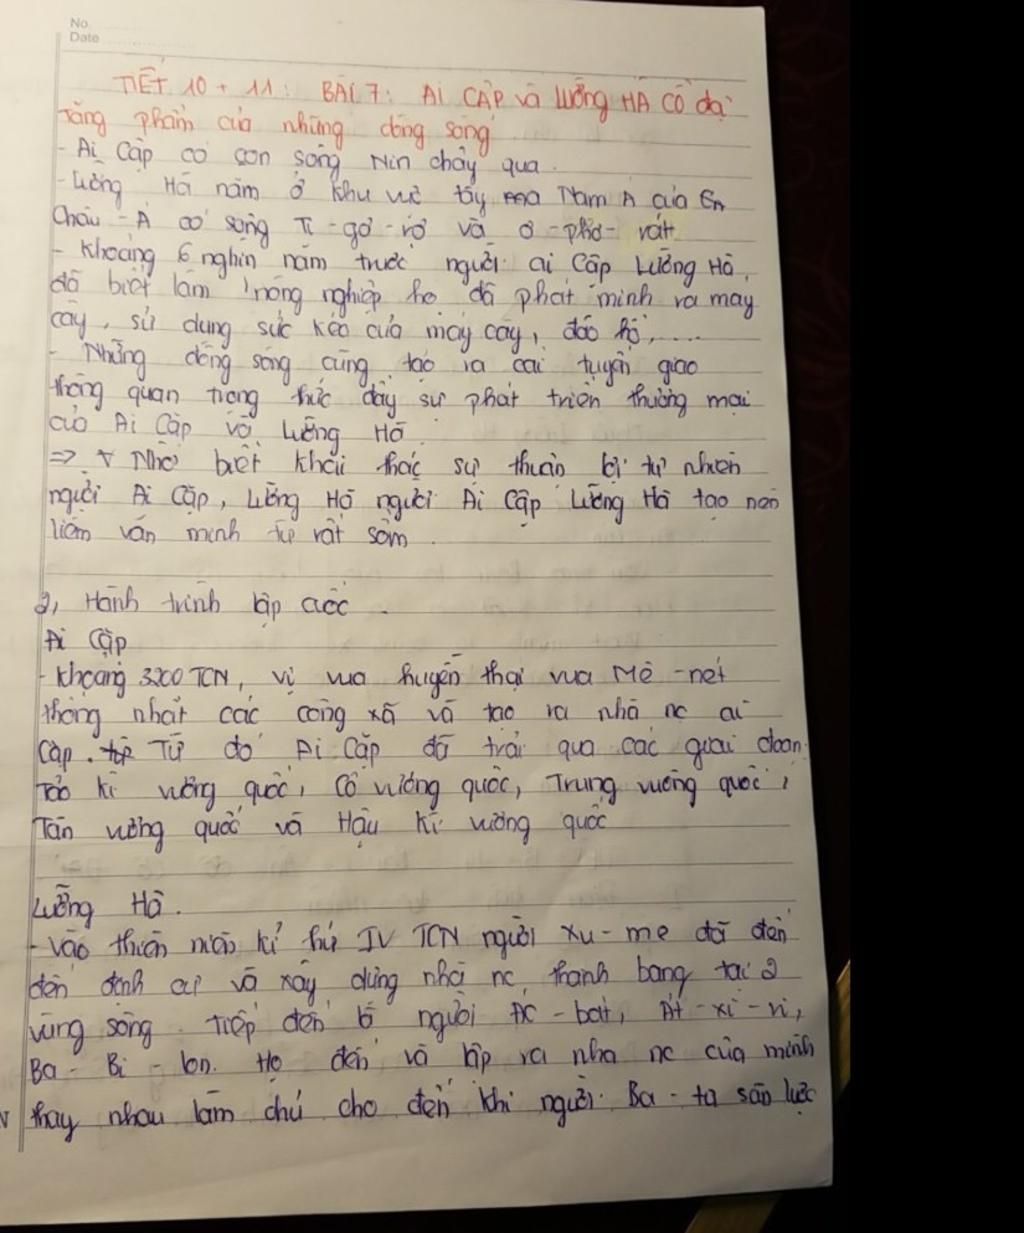 No
Date
TIẾT 10 + 11: BÀI 7: AI CẬP và LƯỠNG HÀ CỔ đại
Tặng phẩm của những dòng sông
- Ai Cập có con sông Nin chảy qua.
- Lưỡng Hà nằm ở khu vực tây Nam Á của
Châu - Á có sông Ti-gơ-rơ và ơ-phơ-rát
- Khoảng 6 nghìn năm trước người ai Cập Lưỡng Hà,
đã biết làm nông nghiệp họ đã phát minh ra máy
cày, sử dụng sức kéo của máy cày, đào hồ,.....
- Những dòng sông cũng tạo ra cai tuyến giao
thông quan trọng thúc đẩy sự phát triển thương mại
của Ai Cập và Lưỡng Hà.
=> Nhờ biết khai thác sự thuận lợi tự nhiên
người Ai Cập, Lưỡng Hà người Ai Cập Lưỡng Hà tạo nên
liềm văn minh từ rất sớm.
2, Hành trình lập cuốc.
Ai Cập
- Khoảng 3200 TCN, vị vua huyền thoại vua Mê-nét
thống nhất các công xã và tạo ra nhà nc ai
cập. Từ đó Ai Cập đã trải qua các giai đoạn.
Tảo kì vương quốc, Cổ vương quốc, Trung vương quốc,
Tân vương quốc và Hậu kì vương quốc
Lưỡng Hà.
- Vào thiên niên kỉ thứ IV TCN người Xu-me đã đến
đến định cư và xây dựng nhà nc thành bang tại 2
vùng sông. Tiếp đến là người Ác-bat, Át-xi-ri,
Ba-Bi-lon. Họ đến và lập ra nhà nc của mình
thay nhau làm chủ cho đến khi người Ba-tư săn lược